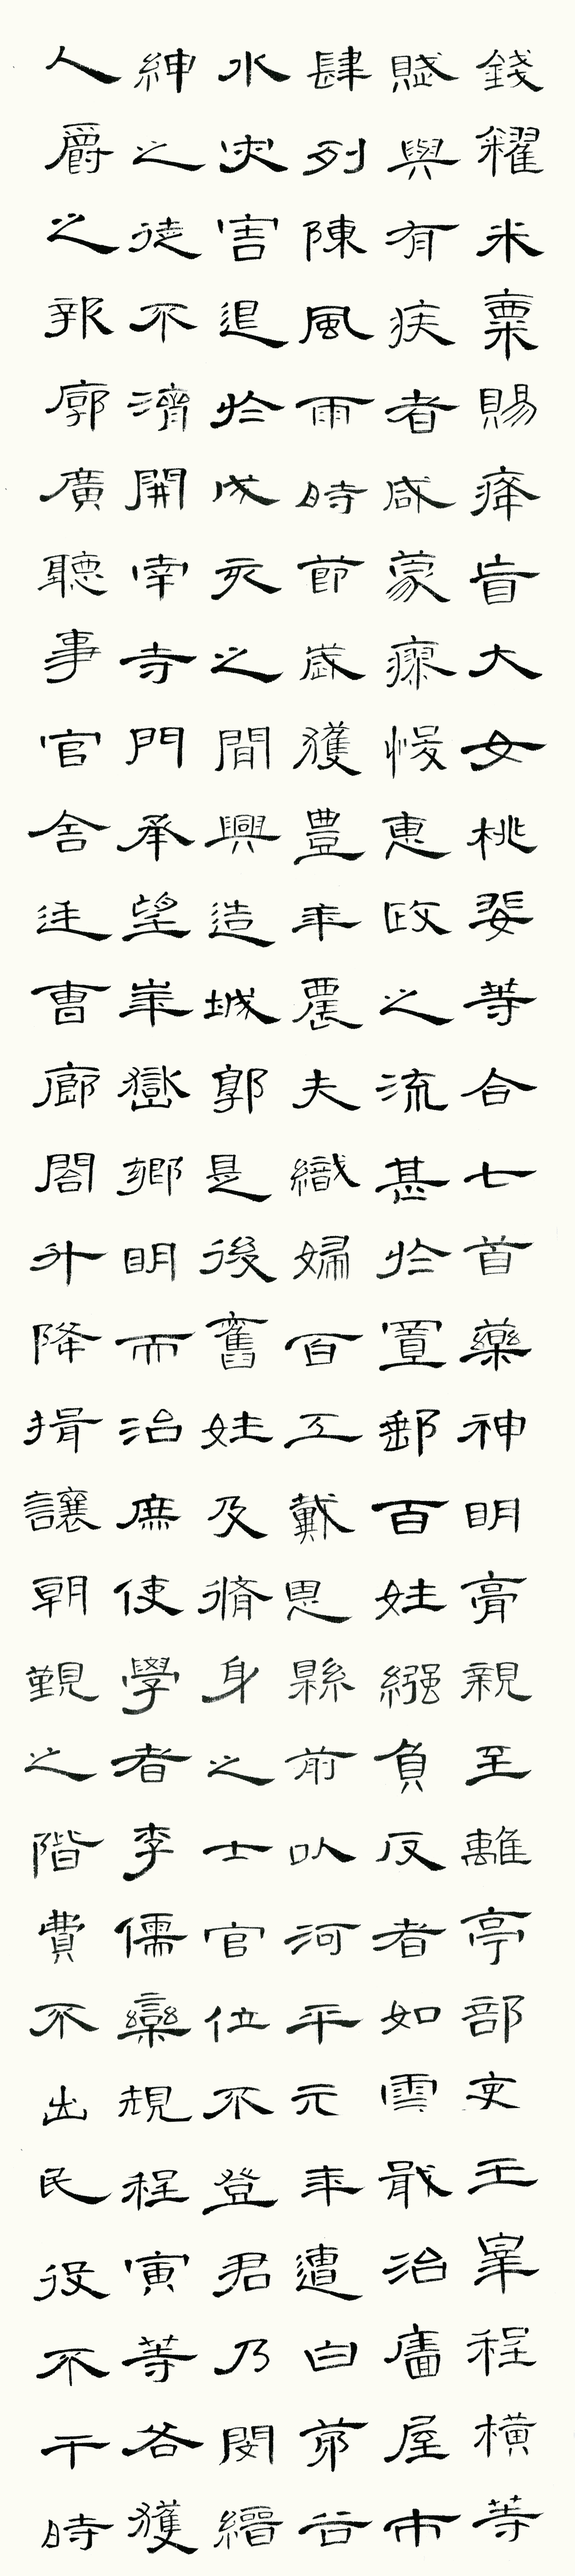 錢糴米粟賜癃盲大女桃婓等合七首藥神明膏親至離亭部吏王皋程橫等
賦與有疾者咸蒙瘳悛惠政之流甚於置郵百姓繈負反者如雲戢治廧屋市
肆列陳風雨時節歲獲豐年農夫織婦百工戴恩縣前以河平元年遭白茅谷
水災害退於戌亥之間興造城郭是後舊姓及脩身之士官位不登君乃閔縉
紳之徒不濟開南寺門承望華嶽鄉明而治庶使學者李儒欒規程寅等各獲
人爵之報廓廣聽事官舍廷曹廊閣升降揖讓朝覲之階費不出民役不干時